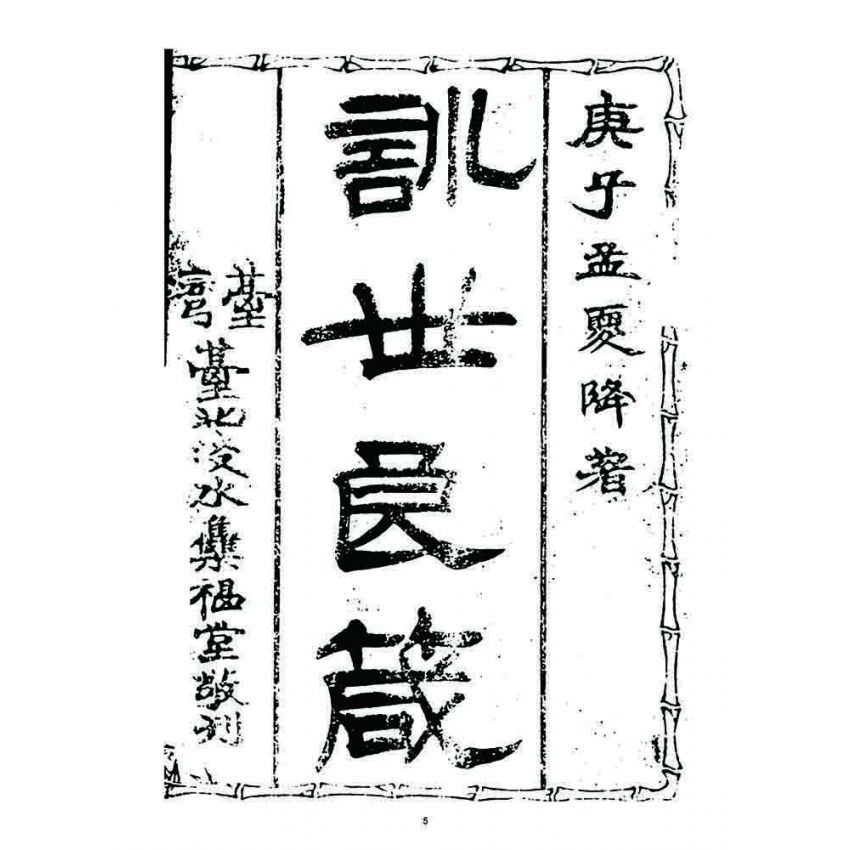 庚子孟夏降著
訓世良箴
臺灣
臺北淡水集福堂敬刊
5